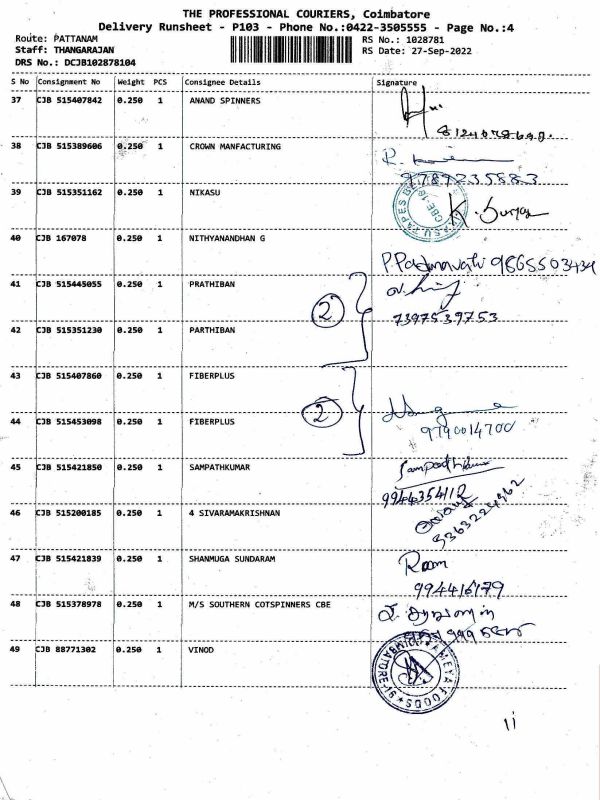 THE PROFESSIONAL COURIERS, Coimbatore
Delivery Runsheet - P103 - Phone No.:0422-3505555 - Page No.:4
Route: PATTANAM
RS No.: 1028781
Staff: THANGARAJAN
RS Date: 27-Sep-2022
DRS No.: DCJB102878104
S No Consignment No Weight PCS Consignee Details Signature
37 CJB 515407842 0.250 1 ANAND SPINNERS
38 CJB 515389606 0.250 1 CROWN MANFACTURING
9789235883
39 CJB 515351162 0.250 1 NIKASU
40 CJB 167078 0.250 1 NITHYANANDHAN G
P. Padmavati 9865503434
41 CJB 515445055 0.250 1 PRATHIBAN
2
7397539753
42 CJB 515351230 0.250 1 PARTHIBAN
43 CJB 515407860 0.250 1 FIBERPLUS
2
9790014700
44 CJB 515453098 0.250 1 FIBERPLUS
45 CJB 515421850 0.250 1 SAMPATHKUMAR
Sampathkumar
9944354112
46 CJB 515200185 0.250 1 4 SIVARAMAKRISHNAN
9363224962
47 CJB 515421839 0.250 1 SHANMUGA SUNDARAM
Ram
994416179
48 CJB 515378978 0.250 1 M/S SOUTHERN COTSPINNERS CBE
49 CJB 88771302 0.250 1 VINOD